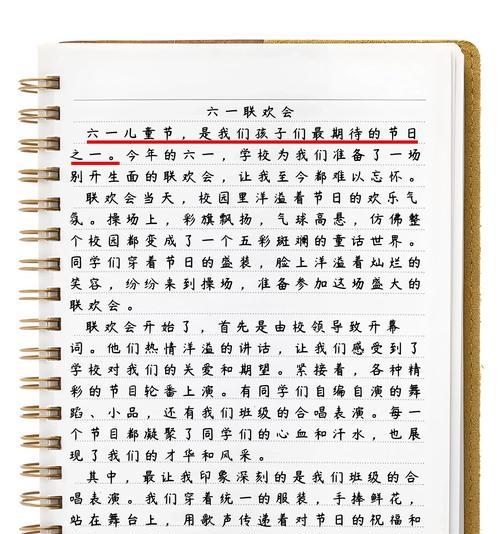 六一联欢会
六一儿童节，是我们孩子们最期待的节日
之一。今年的六一，学校为我们准备了一场
别开生面的联欢会，让我至今都难以忘怀。
联欢会当天，校园里洋溢着节日的欢乐气
氛。操场上，彩旗飘扬，气球高悬，仿佛整
个校园都变成了一个五彩斑斓的童话世界。
同学们穿着节日的盛装，脸上洋溢着灿烂的
笑容，纷纷来到操场，准备参加这场盛大的
联欢会。
联欢会开始了，首先是由校领导致开幕
词。他们热情洋溢的讲话，让我们感受到了
学校对我们的关爱和期望。紧接着，各种精
彩的节目轮番上演。有同学们自编自演的舞
蹈、小品，还有我们班级的合唱表演。每一
个节目都凝聚了同学们的心血和汗水，也展
现了我们的才华和风采。
其中，最让我印象深刻的是我们班级的合
唱表演。我们穿着统一的服装，手捧鲜花，
站在舞台上，用歌声传递着对节日的祝福和